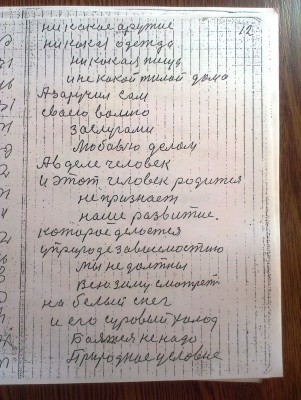 12
никакое оружие
никакая одежда
никакая пищь
и некакой жилой дома
А заручил сам
своею волию
заслугами
Любовлю делом
А в деле человек
И этот человек родится
не признает
наше развитие.
которое делается
у природе зависемостию
Мы не должны
Всю зиму смотреть
на белый снег
и его суровый холод
Баяжся не надо
Природное условие